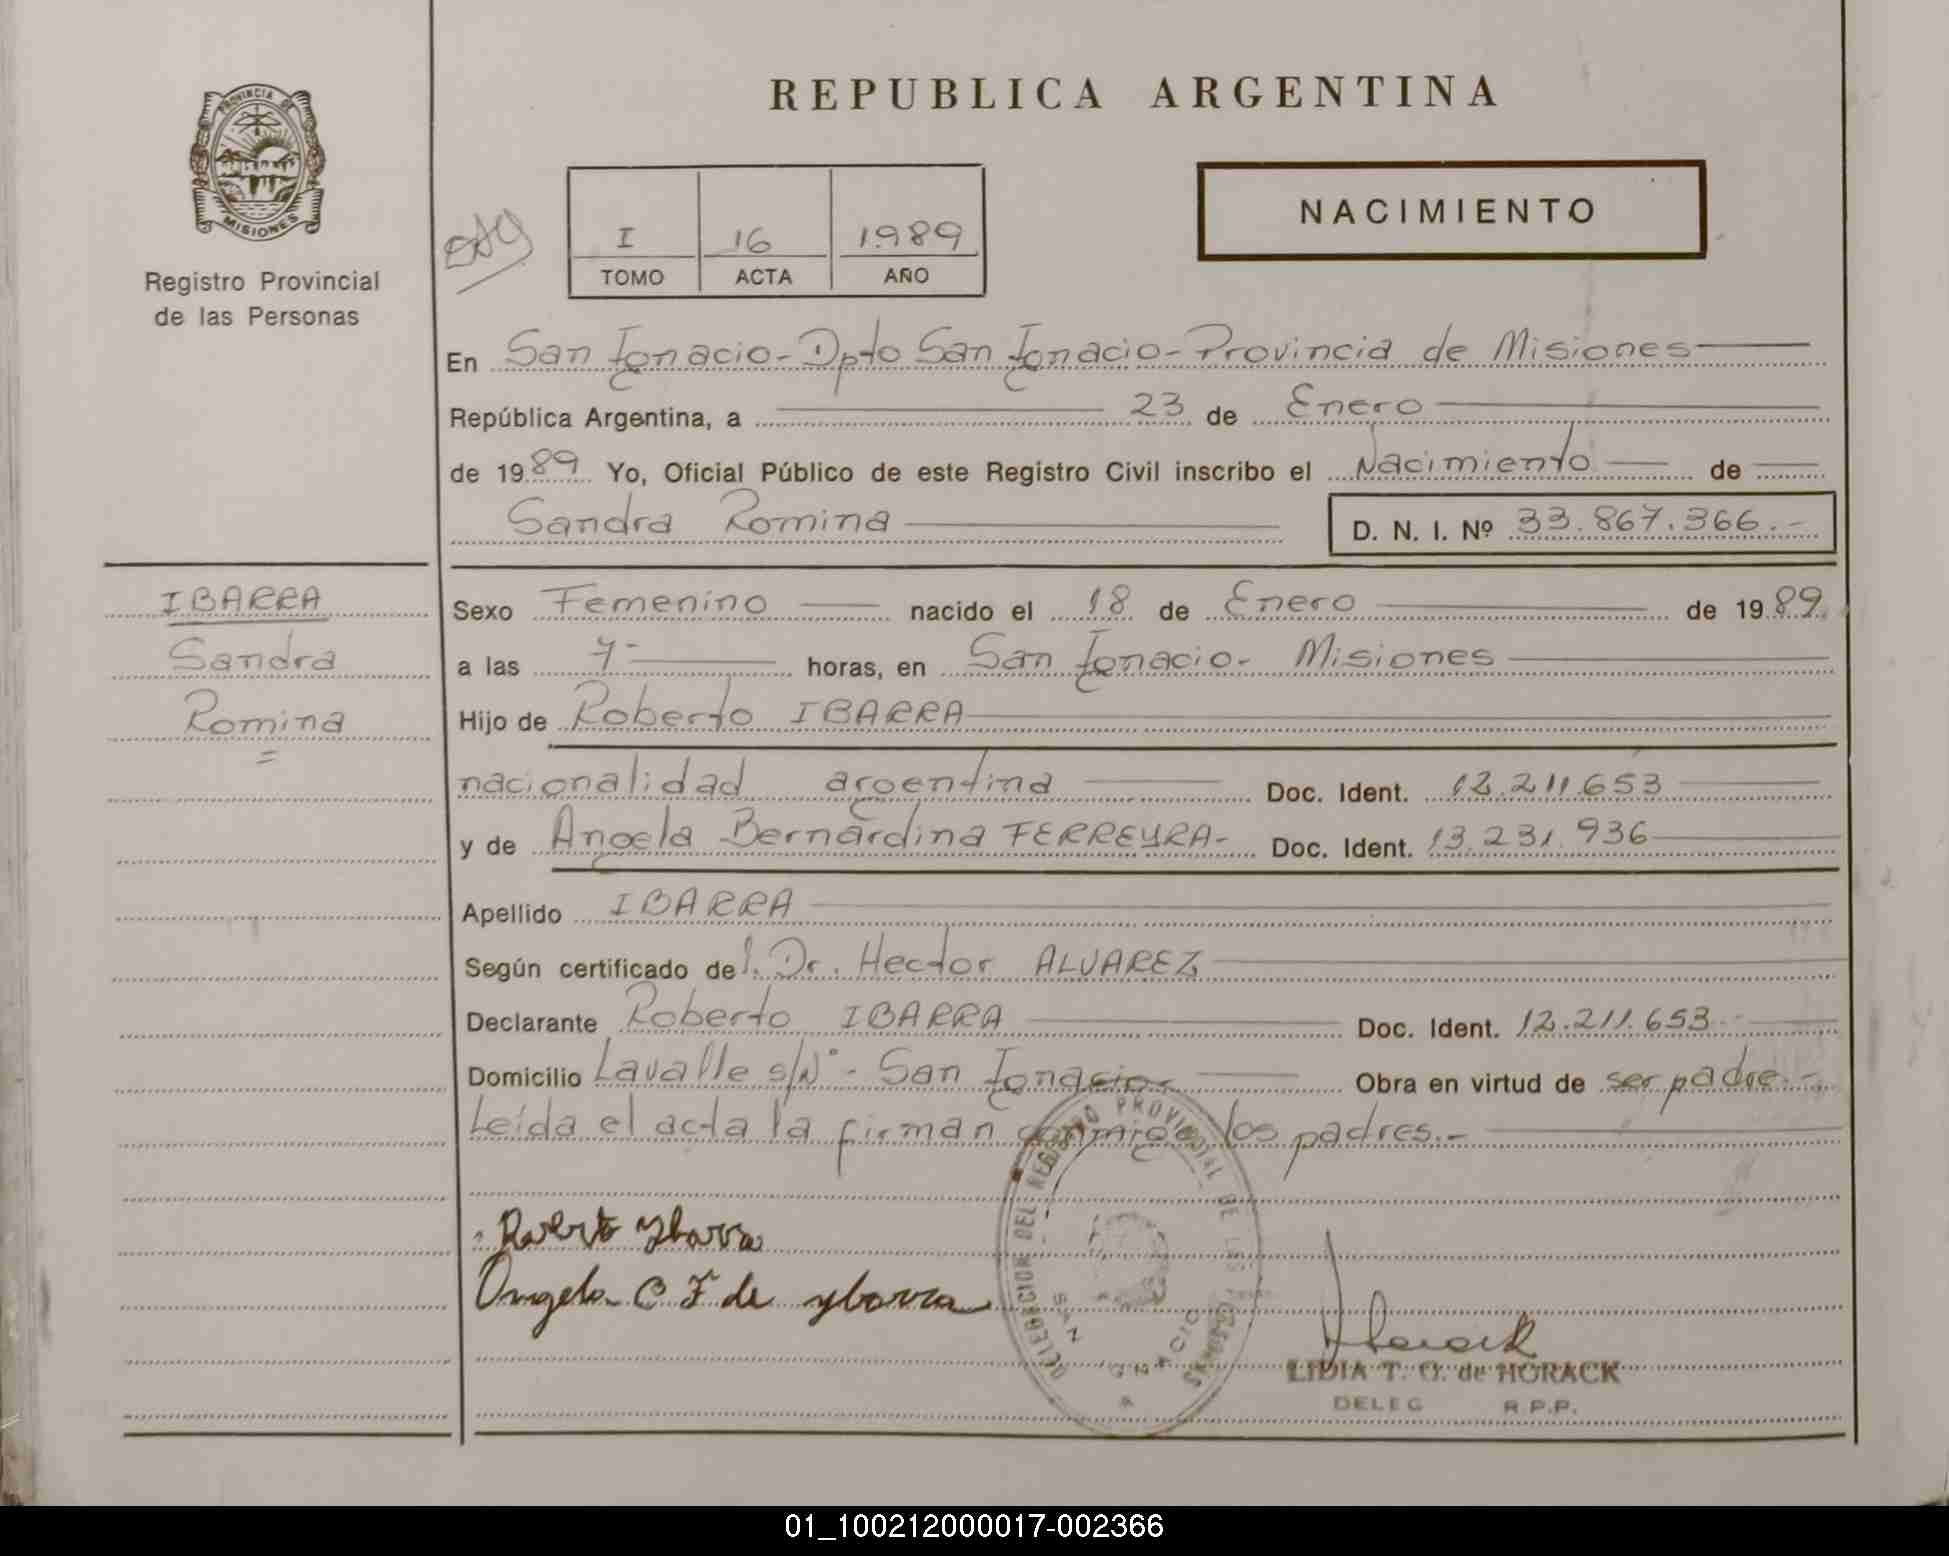 REPUBLICA ARGENTINA
PROVINCIA DE
MISIONES
Registro Provincial
de las Personas
I 16 1989
TOMO ACTA AÑO
NACIMIENTO
En San Ignacio - Dpto San Ignacio - Provincia de Misiones
República Argentina, a 23 de Enero
de 1989 Yo, Oficial Público de este Registro Civil inscribo el Nacimiento de
Sandra Romina D. N. I. Nº 33.867.366.-
IBARRA
Sandra
Romina
=
Sexo Femenino nacido el 18 de Enero de 1989.
a las 7- horas, en San Ignacio - Misiones
Hijo de Roberto IBARRA
nacionalidad argentina Doc. Ident. 12.211.653
y de Angela Bernardina FERREYRA- Doc. Ident. 13.231.936
Apellido IBARRA
Según certificado del. Dr. Hector ALVAREZ
Declarante Roberto IBARRA Doc. Ident. 12.211.653
Domicilio Lavalle s/Nº - San Ignacio- Obra en virtud de ser padre.-
Leída el acta la firman conmigo los padres.-
DELEGACION DEL REGISTRO PROVINCIAL DE LAS PERSONAS
SAN IGNACIO
Roberto Ybarra
Angela F de ybarra
Horack
LIDIA T. O. de HORACK
DELEG R.P.P.
01_100212000017-002366